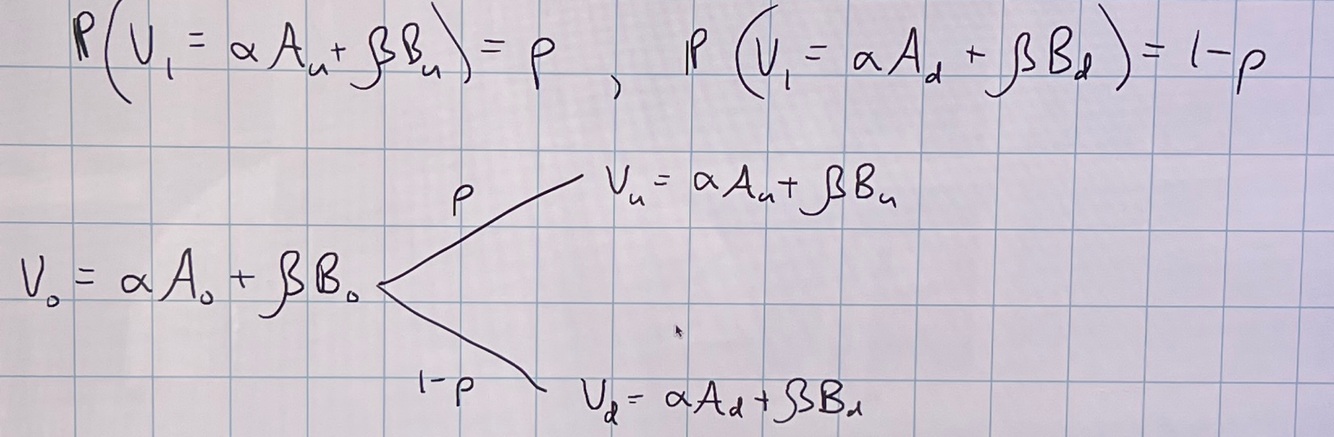 P(V₁ = αAᵤ + βBᵤ) = p , P(V₁ = αA_d + βB_d) = 1-p
p Vᵤ = αAᵤ + βBᵤ
V₀ = αA₀ + βB₀
1-p V_d = αA_d + βB_d